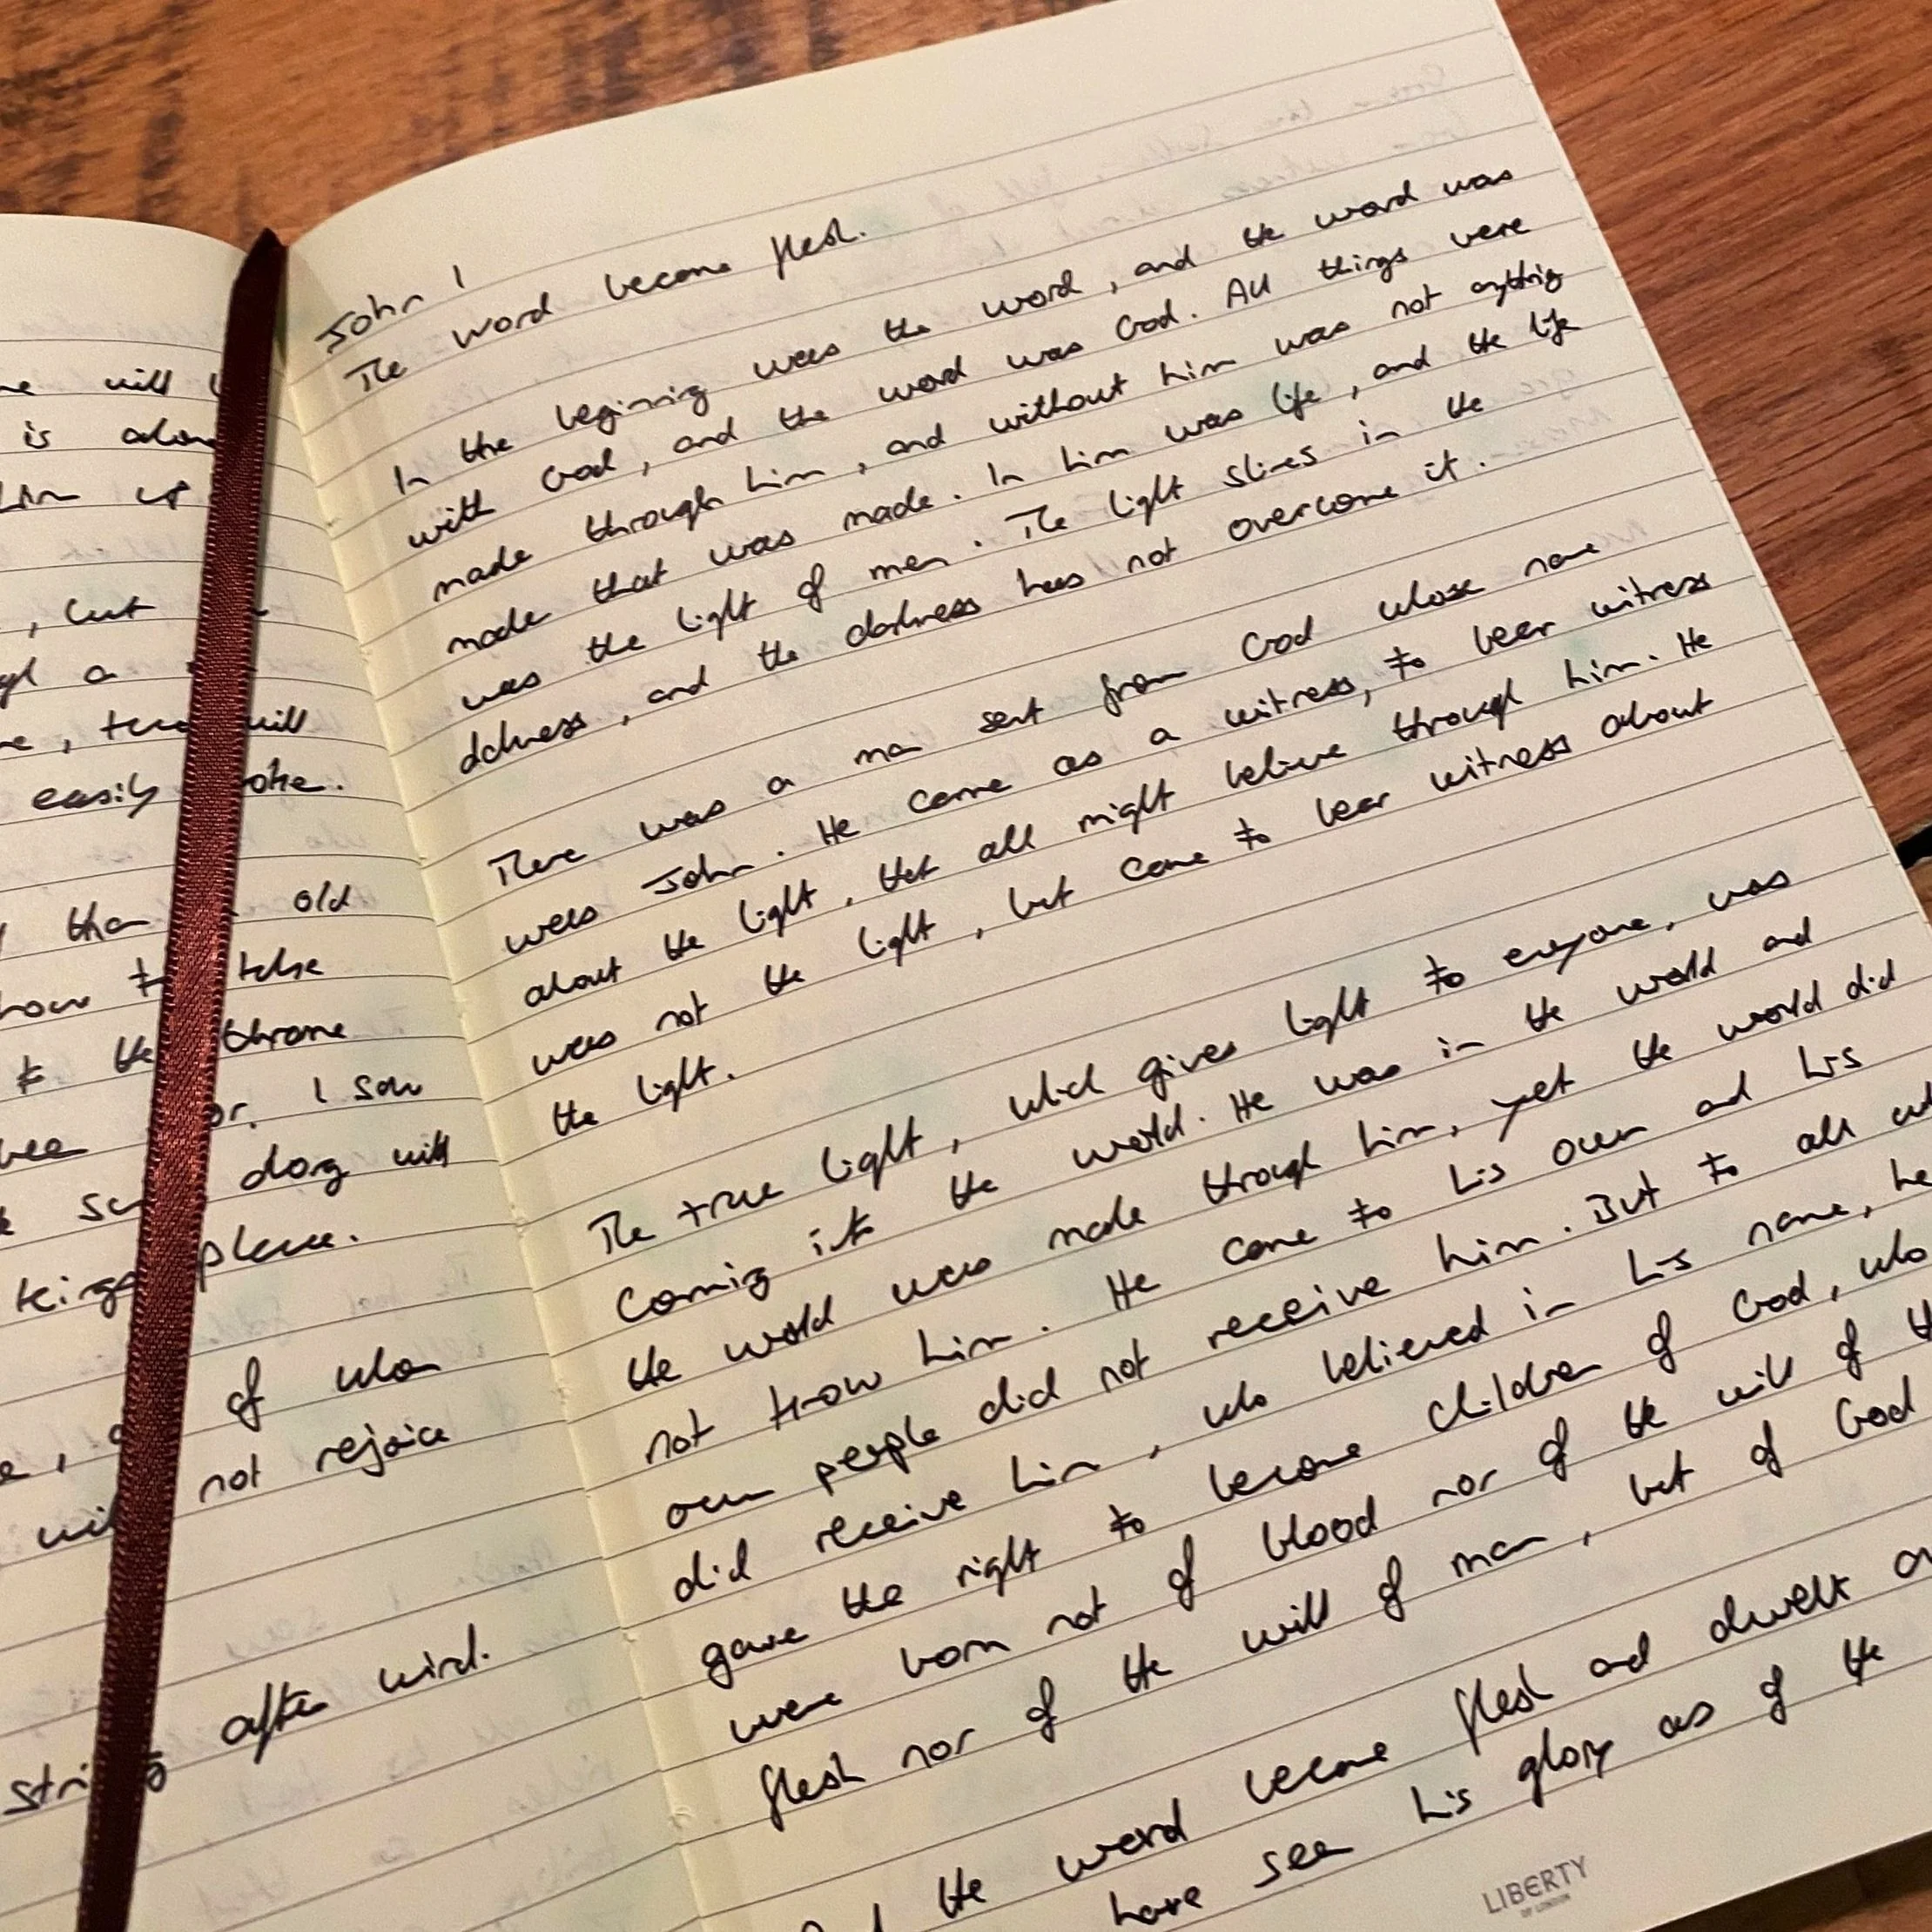 will
is
him up
, but
a
will
easily
than old
how to take
to the throne
I saw
doing will
kings place.
of whom
not rejoice
after wind.
John 1
The word became flesh.
In the beginning was the word, and the word was
with God, and the word was God. All things were
made through him, and without him was not anything
made that was made. In him was life, and the life
was the light of men. The light shines in the
, and the darkness has not overcome it.
There was a man sent from God whose name
was John. He came as a witness, to bear witness
about the light, that all might believe through him. He
was not the light, but came to bear witness about
the light.
The true light, which gives light to everyone, was
coming into the world. He was in the world and
the world was made through him, yet the world did
not know him. He came to his own and his
own people did not receive him. But to all
did receive him, who believed in his name, he
gave the right to become children of God, who
were born not of blood nor of the will of
flesh nor of the will of man, but of God
the word became flesh and dwelt
have seen his glory as of the
LIBERTY
OF LONDON